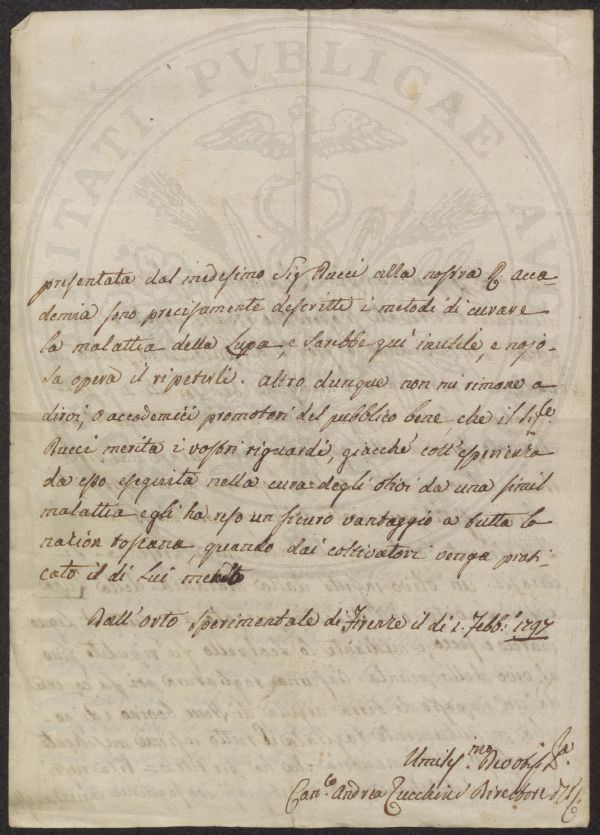 ITATI PVBLICAE AV
presentata dal medesimo Sig Bucci alla nostra R. acca-
demia sono precisamente descritti i metodi di curare
la malattia della Lupa, e sarebbe quì inutile, e nojo-
sa opera il ripeterli. altro dunque non mi rimane a
dirvi, o accademici promotori del pubblico bene che il Sig.e
Bucci merita i vostri riguardi, giacchè coll'esperienza
da esso eseguita nella cura degli olivi da una simil
malattia egli ha reso un sicuro vantaggio a tutta la
nazion toscana, quando dai coltivatori venga prati-
cato il di lui
Dall'orto sperimentale di Firenze il dì 1. Febb.o 1797
Umiliss.mo
Can.co Andrea Zucchini Direttore